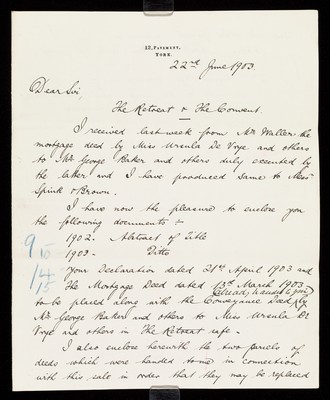 12, PAVEMENT,
YORK.
22nd June 1903.
Dear Sir
The Retreat & The Convent.
I received last week from Mr Waller the
mortgage deed by Miss Ursula De Voye and others
to Mr George Baker and others duly executed by
the latter and I have produced same to Messrs
Spink & Brown.
I have now the pleasure to enclose you
the following documents :-
1902. Abstract of Title
1903. Ditto
9 10
14
15
Your Declaration dated 21st April 1903 and
The Mortgage Deed dated 13th March 1903
(already handed to you)
to be placed along with the Conveyance Deed by
Mr George Baker and others to Miss Ursula De
Voye and others in The Retreat safe.
I also enclose herewith the two parcels of
deeds which were handed to me in connection
with this sale in order that they may be replaced